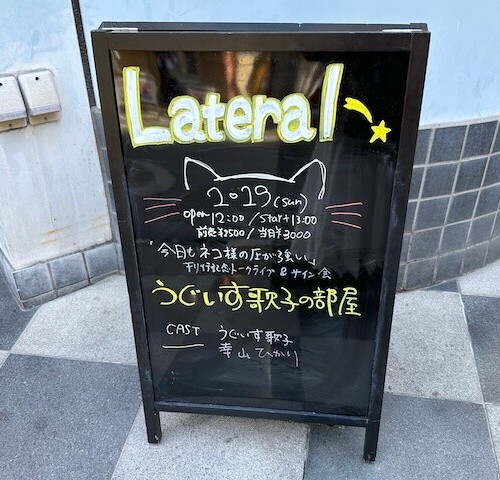 Lateral
2.19(sun)
open 12:00 / start 13:00
前売¥2500 / 当日¥3000
「今日もネコ様の圧が強い」
刊行記念トークライブ & サイン会
うぐいす歌子の部屋
CAST うぐいす歌子
幸山ひかり